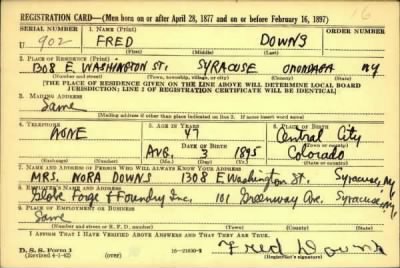 16
REGISTRATION CARD—(Men born on or after April 28, 1877 and on or before February 16, 1897)
SERIAL NUMBER 1. NAME (Print) ORDER NUMBER
U 902 FRED DOWNS
(First) (Middle) (Last)
2. PLACE OF RESIDENCE (Print)
1308 E. WASHINGTON ST. SYRACUSE ONONDAGA NY
(Number and street) (Town, township, village, or city) (County) (State)
[THE PLACE OF RESIDENCE GIVEN ON THE LINE ABOVE WILL DETERMINE LOCAL BOARD
JURISDICTION; LINE 2 OF REGISTRATION CERTIFICATE WILL BE IDENTICAL]
3. MAILING ADDRESS
Same
(Mailing address if other than place indicated on line 2. If same insert word same)
4. TELEPHONE 5. AGE IN YEARS 6. PLACE OF BIRTH
NONE 47 Central City
DATE OF BIRTH (Town or county)
AUG. 3 1895 Colorado
(Exchange) (Number) (Mo.) (Day) (Yr.) (State or country)
7. NAME AND ADDRESS OF PERSON WHO WILL ALWAYS KNOW YOUR ADDRESS
MRS. NORA DOWNS 1308 E Washington St. Syracuse, Ny
8. EMPLOYER'S NAME AND ADDRESS
Globe Forge & Foundry Inc. 101 Greenway Ave. Syracuse, Ny
9. PLACE OF EMPLOYMENT OR BUSINESS
Same
(Number and street or R. F. D. number) (Town) (County) (State)
I AFFIRM THAT I HAVE VERIFIED ABOVE ANSWERS AND THAT THEY ARE TRUE.
D. S. S. Form 1
(Revised 4-1-42) 16-21630-2 Fred Downs
(Registrant's signature)